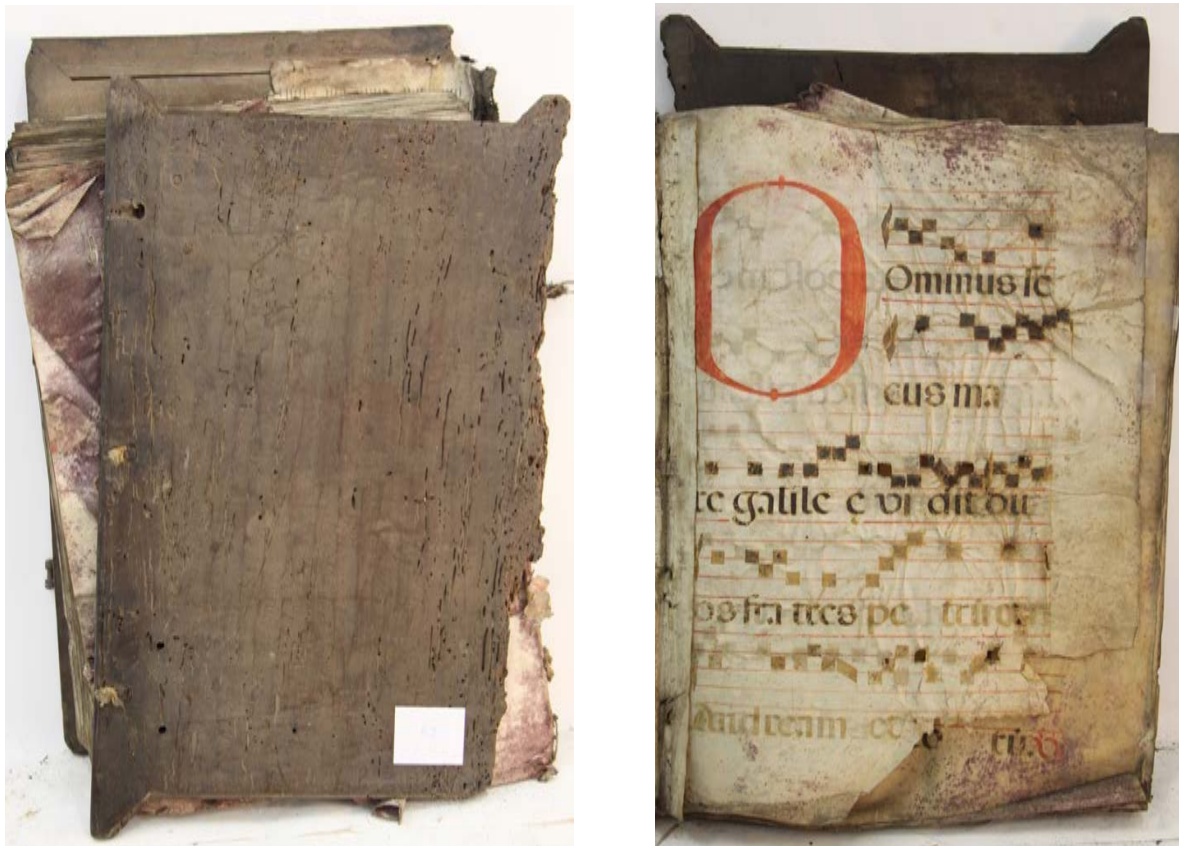 O
Ominus se
cus ma
re galile e vi dit du
os fra tres pe
Andream